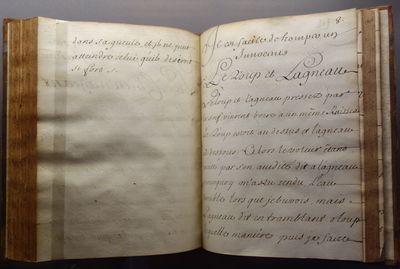 dans sa gueule et il ne peut
atteindre celui quil desire
si fort s.
8.
Il est facile de tromper un
Innocent
Le Loup et Lagneau
Le loup et lagneau pressez par
la soif vinrent boire a un même Ruisseau
Le Loup estoit au dessus et lagneau
au dessous. Alors le voleur étant
par son avidité dit a lagneau
pourquoy m'as tu rendu Leau
trouble lors que je buvois, mais
Lagneau dit en tremblant o loup
de quelle maniere puis je faire